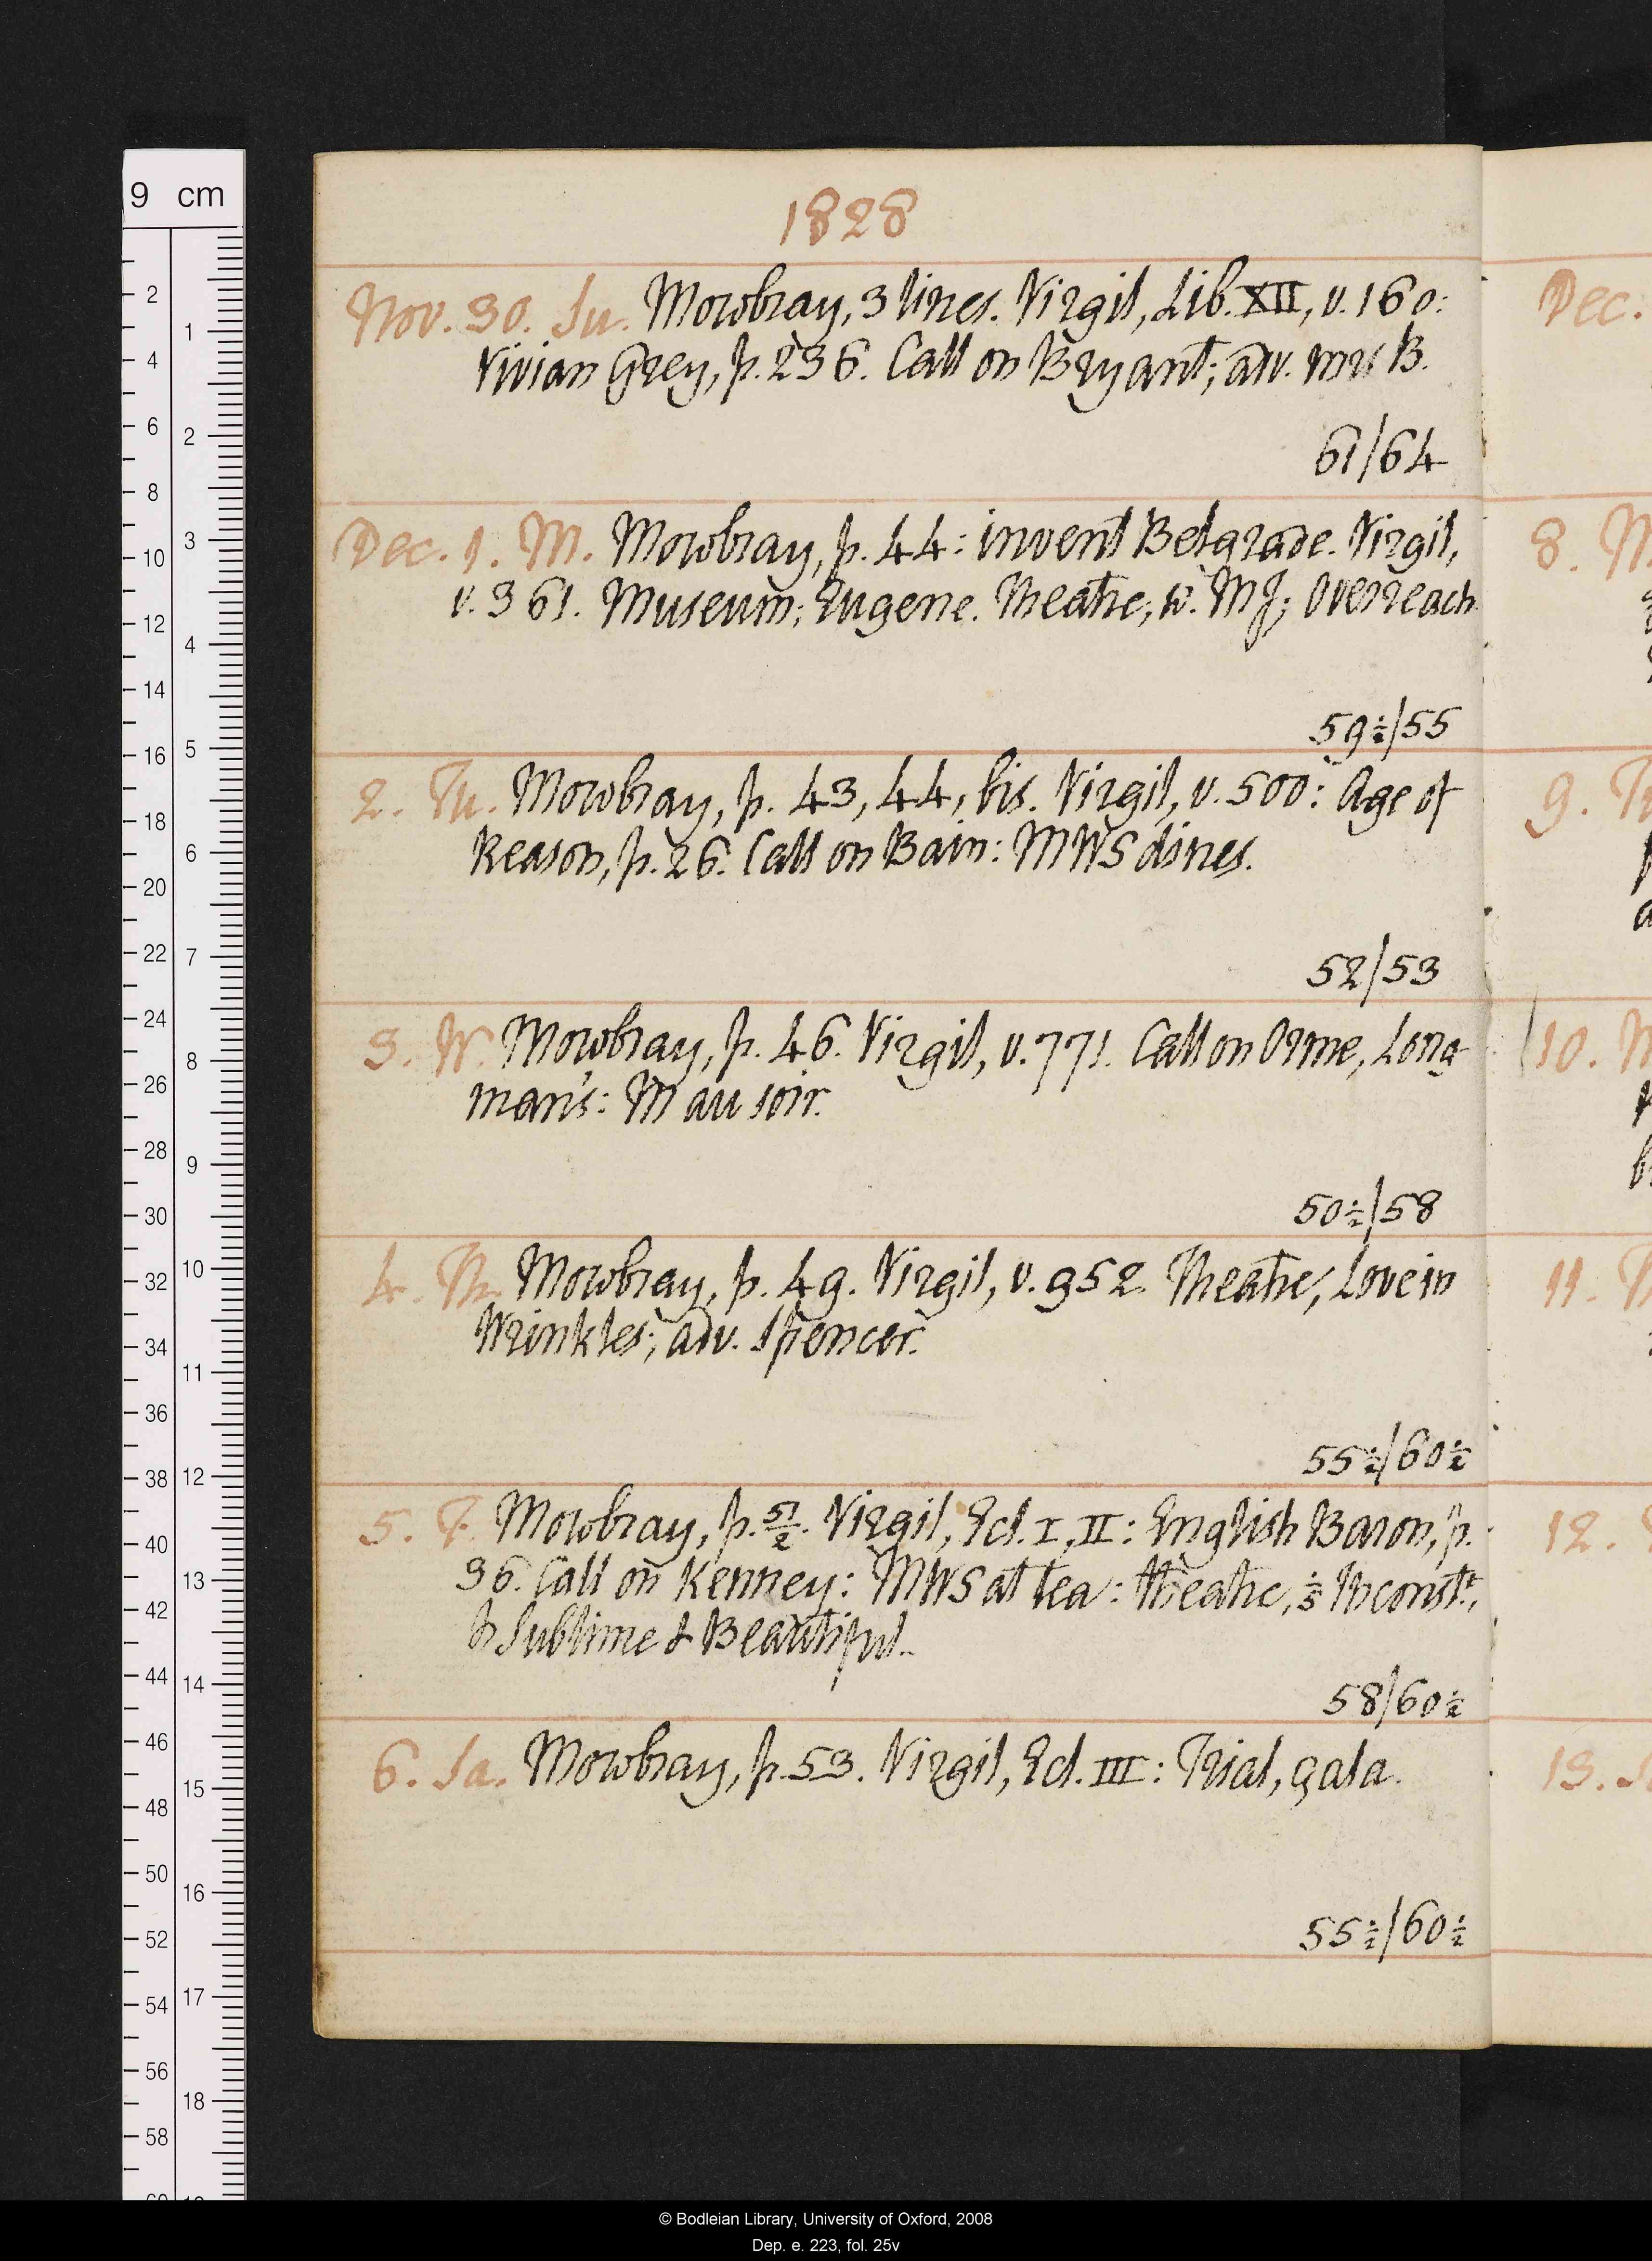 1828
Nov. 30. Su. Mowbray, 3 lines. Virgil, Lib. XII, v. 160:
Vivian Grey, p. 236. Call on Bryant; adv. mrs B.
61/64
Dec. 1. M. Mowbray, p. 44: invent Belgrade. Virgil,
v. 361. Museum; Eugene. Theatre, w. MJ; Overreach
59½/55
2. Tu. Mowbray, p. 43, 44, bis. Virgil, v. 500: Age of
Reason, p. 26. Call on Bain: MWS dines.
52/53
3. W. Mowbray, p. 46. Virgil, v. 771. Call on Orme, Long-
man's: M au soir.
50½/58
4. Th. Mowbray, p. 49. Virgil, v. 952. Theatre, Love in
Wrinkles; adv. Spencer.
55½/60½
5. F. Mowbray, p. 51/2. Virgil, Ecl. I, II: English Baron, p.
36. Call on Kenney: MWS at tea: theatre, ⅕ Inconst.,
& Sublime & Beautiful.
58/60½
6. Sa. Mowbray, p. 53. Virgil, Ecl. III: Trial, çala.
55½/60½
Dec.
8. M
9. Tu
10. W
11. T
12.
13. S
9 cm
2 4 6 8 10 12 14 16 18 20 22 24 26 28 30 32 34 36 38 40 42 44 46 48 50 52 54 56 58
1 2 3 4 5 6 7 8 9 10 11 12 13 14 15 16 17 18
© Bodleian Library, University of Oxford, 2008
Dep. e. 223, fol. 25v